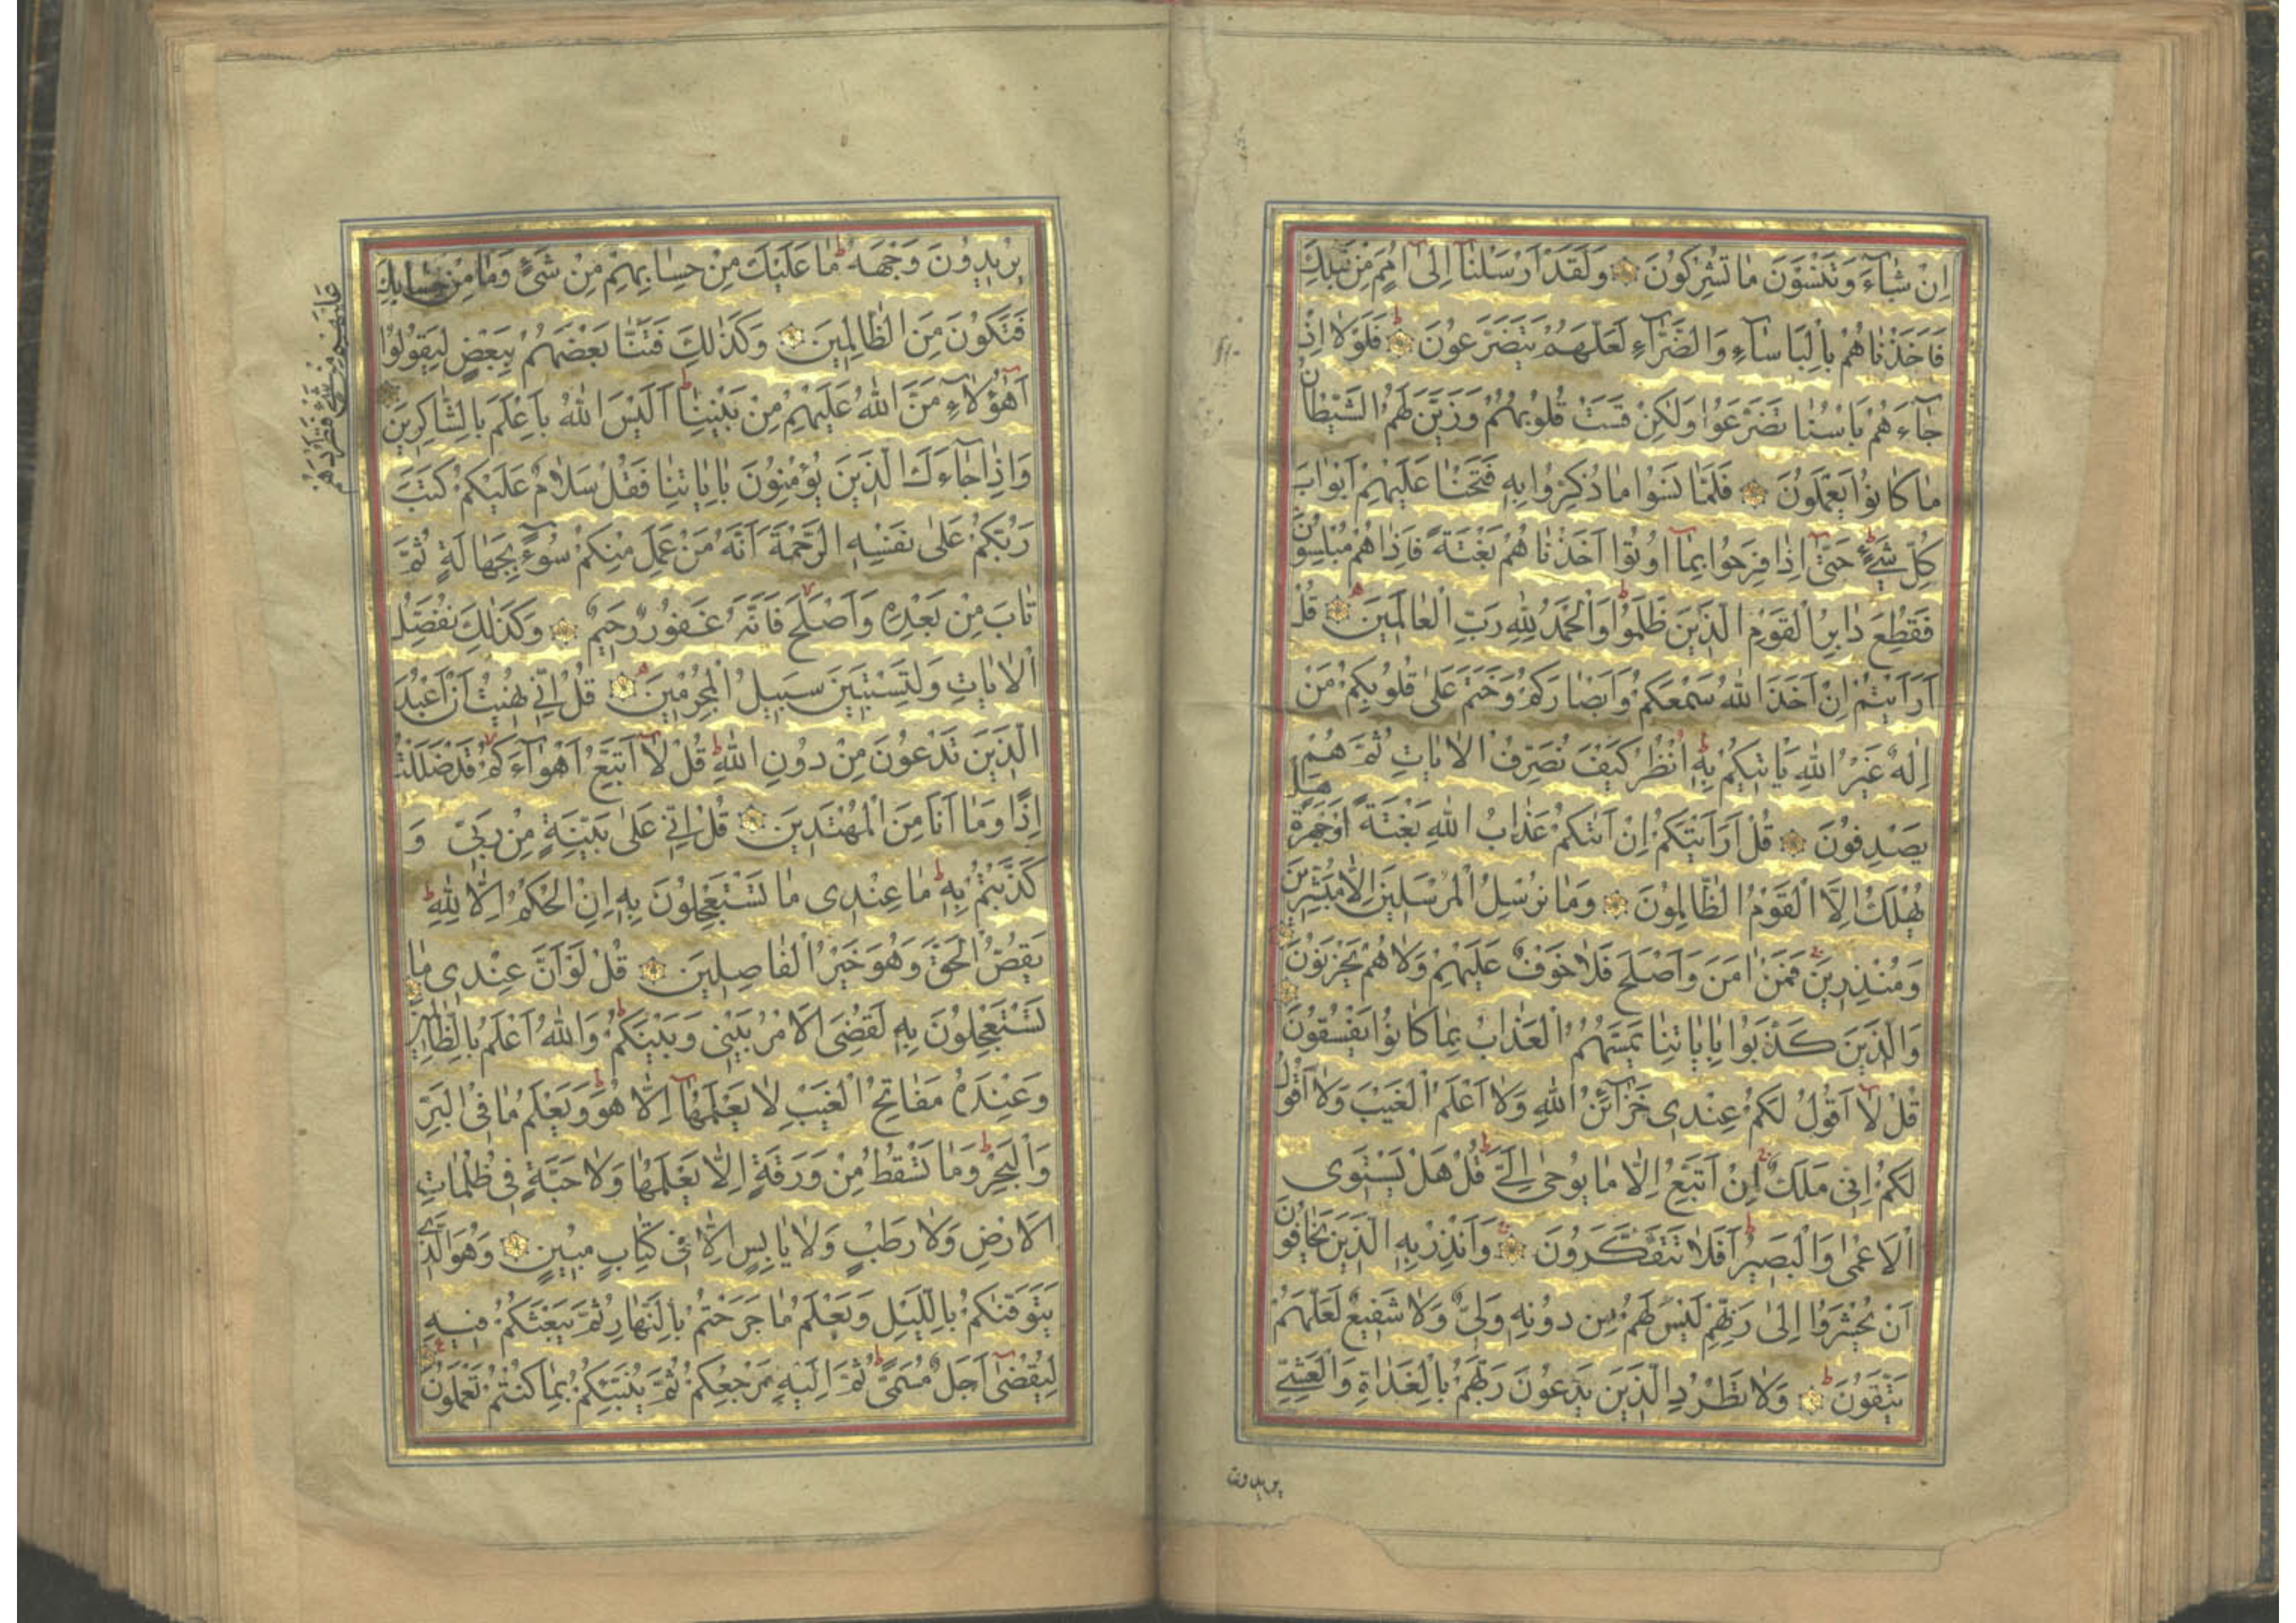 اِنْ شٰٓاءَ وَتَنْسَوْنَ مٰا تُشْرِكُونَ وَلَقَدْ اَرْسَلْنٰٓا اِلىٰٓ اُمَمٍ مِنْ قَبْلِكَ
فَاَخَذْنٰاهُمْ بِالْبَاْسٰٓاءِ وَالضَّرّٰٓاءِ لَعَلَّهُمْ يَتَضَرَّعُونَ فَلَوْلٰا اِذْ
جٰٓاءَهُمْ بَاْسُنٰا تَضَرَّعُوا وَلٰكِنْ قَسَتْ قُلُوبُهُمْ وَزَيَّنَ لَهُمُ الشَّيْطٰانُ
مٰا كٰانُوا يَعْمَلُونَ فَلَمّٰا نَسُوا مٰا ذُكِّرُوا بِهِ فَتَحْنٰا عَلَيْهِمْ اَبْوٰابَ
كُلِّ شَيْءٍ حَتّٰىٓ اِذٰا فَرِحُوا بِمٰٓا اُوتُوا اَخَذْنٰاهُمْ بَغْتَةً فَاِذٰا هُمْ مُبْلِسُونَ
فَقُطِعَ دٰابِرُ الْقَوْمِ الَّذِينَ ظَلَمُوا وَالْحَمْدُ لِلّٰهِ رَبِّ الْعٰالَمِينَ قُلْ
اَرَاَيْتُمْ اِنْ اَخَذَ اللّٰهُ سَمْعَكُمْ وَاَبْصٰارَكُمْ وَخَتَمَ عَلىٰ قُلُوبِكُمْ مَنْ
اِلٰهٌ غَيْرُ اللّٰهِ يَاْتِيكُمْ بِهِ اُنْظُرْ كَيْفَ نُصَرِّفُ الْاٰيٰاتِ ثُمَّ هُمْ
يَصْدِفُونَ قُلْ اَرَاَيْتَكُمْ اِنْ اَتٰىكُمْ عَذٰابُ اللّٰهِ بَغْتَةً اَوْ جَهْرَةً هَلْ
يُهْلَكُ اِلَّا الْقَوْمُ الظّٰالِمُونَ وَمٰا نُرْسِلُ الْمُرْسَلِينَ اِلّٰا مُبَشِّرِينَ
وَمُنْذِرِينَ فَمَنْ اٰمَنَ وَاَصْلَحَ فَلٰا خَوْفٌ عَلَيْهِمْ وَلٰا هُمْ يَحْزَنُونَ
وَالَّذِينَ كَذَّبُوا بِاٰيٰاتِنٰا يَمَسُّهُمُ الْعَذٰابُ بِمٰا كٰانُوا يَفْسُقُونَ
قُلْ لٰٓا اَقُولُ لَكُمْ عِنْدِى خَزٰٓائِنُ اللّٰهِ وَلٰٓا اَعْلَمُ الْغَيْبَ وَلٰٓا اَقُولُ
لَكُمْ اِنّىِ مَلَكٌ اِنْ اَتَّبِعُ اِلّٰا مٰا يُوحىٰٓ اِلَيَّ قُلْ هَلْ يَسْتَوِى
الْاَعْمىٰ وَالْبَصِيرُ اَفَلٰا تَتَفَكَّرُونَ وَاَنْذِرْ بِهِ الَّذِينَ يَخٰافُونَ
اَنْ يُحْشَرُوٓا اِلىٰ رَبِّهِمْ لَيْسَ لَهُمْ مِنْ دُونِهِ وَلِيٌّ وَلٰا شَفِيعٌ لَعَلَّهُمْ
يَتَّقُونَ وَلٰا تَطْرُدِ الَّذِينَ يَدْعُونَ رَبَّهُمْ بِالْغَدٰاةِ وَالْعَشِيِّ
يريدون
يُرِيدُونَ وَجْهَهُ مٰا عَلَيْكَ مِنْ حِسٰابِهِمْ مِنْ شَيْءٍ وَمٰا مِنْ حِسٰابِكَ
عَلَيْهِمْ مِنْ شَيْءٍ فَتَطْرُدَهُمْ
فَتَكُونَ مِنَ الظّٰالِمِينَ وَكَذٰلِكَ فَتَنّٰا بَعْضَهُمْ بِبَعْضٍ لِيَقُولُوٓا
اَهٰٓؤُلٰٓاءِ مَنَّ اللّٰهُ عَلَيْهِمْ مِنْ بَيْنِنٰا اَلَيْسَ اللّٰهُ بِاَعْلَمَ بِالشّٰاكِرِينَ
وَاِذٰا جٰٓاءَكَ الَّذِينَ يُؤْمِنُونَ بِاٰيٰاتِنٰا فَقُلْ سَلٰامٌ عَلَيْكُمْ كَتَبَ
رَبُّكُمْ عَلىٰ نَفْسِهِ الرَّحْمَةَ اَنَّهُ مَنْ عَمِلَ مِنْكُمْ سُوٓءً بِجَهٰالَةٍ ثُمَّ
تٰابَ مِنْ بَعْدِهِ وَاَصْلَحَ فَاَنَّهُ غَفُورٌ رَحِيمٌ وَكَذٰلِكَ نُفَصِّلُ
الْاٰيٰاتِ وَلِتَسْتَبِينَ سَبِيلُ الْمُجْرِمِينَ قُلْ اِنّىِ نُهِيتُ اَنْ اَعْبُدَ
الَّذِينَ تَدْعُونَ مِنْ دُونِ اللّٰهِ قُلْ لٰٓا اَتَّبِعُ اَهْوٰٓاءَكُمْ قَدْ ضَلَلْتُ
اِذًا وَمٰٓا اَنَا مِنَ الْمُهْتَدِينَ قُلْ اِنّىِ عَلىٰ بَيِّنَةٍ مِنْ رَبّىِ وَ
كَذَّبْتُمْ بِهِ مٰا عِنْدِى مٰا تَسْتَعْجِلُونَ بِهِ اِنِ الْحُكْمُ اِلّٰا لِلّٰهِ
يَقُصُّ الْحَقَّ وَهُوَ خَيْرُ الْفٰاصِلِينَ قُلْ لَوْ اَنَّ عِنْدِى مٰا
تَسْتَعْجِلُونَ بِهِ لَقُضِىَ الْاَمْرُ بَيْنِى وَبَيْنَكُمْ وَاللّٰهُ اَعْلَمُ بِالظّٰالِمِينَ
وَعِنْدَهُ مَفٰاتِحُ الْغَيْبِ لٰا يَعْلَمُهٰٓا اِلّٰا هُوَ وَيَعْلَمُ مٰا فِى الْبَرِّ
وَالْبَحْرِ وَمٰا تَسْقُطُ مِنْ وَرَقَةٍ اِلّٰا يَعْلَمُهٰا وَلٰا حَبَّةٍ فِى ظُلُمٰاتِ
الْاَرْضِ وَلٰا رَطْبٍ وَلٰا يٰابِسٍ اِلّٰا فِى كِتٰابٍ مُبِينٍ وَهُوَ الَّذِى
يَتَوَفّٰىكُمْ بِاللَّيْلِ وَيَعْلَمُ مٰا جَرَحْتُمْ بِالنَّهٰارِ ثُمَّ يَبْعَثُكُمْ فِيهِ
لِيُقْضىٰٓ اَجَلٌ مُسَمًّى ثُمَّ اِلَيْهِ مَرْجِعُكُمْ ثُمَّ يُنَبِّئُكُمْ بِمٰا كُنْتُمْ تَعْمَلُونَ